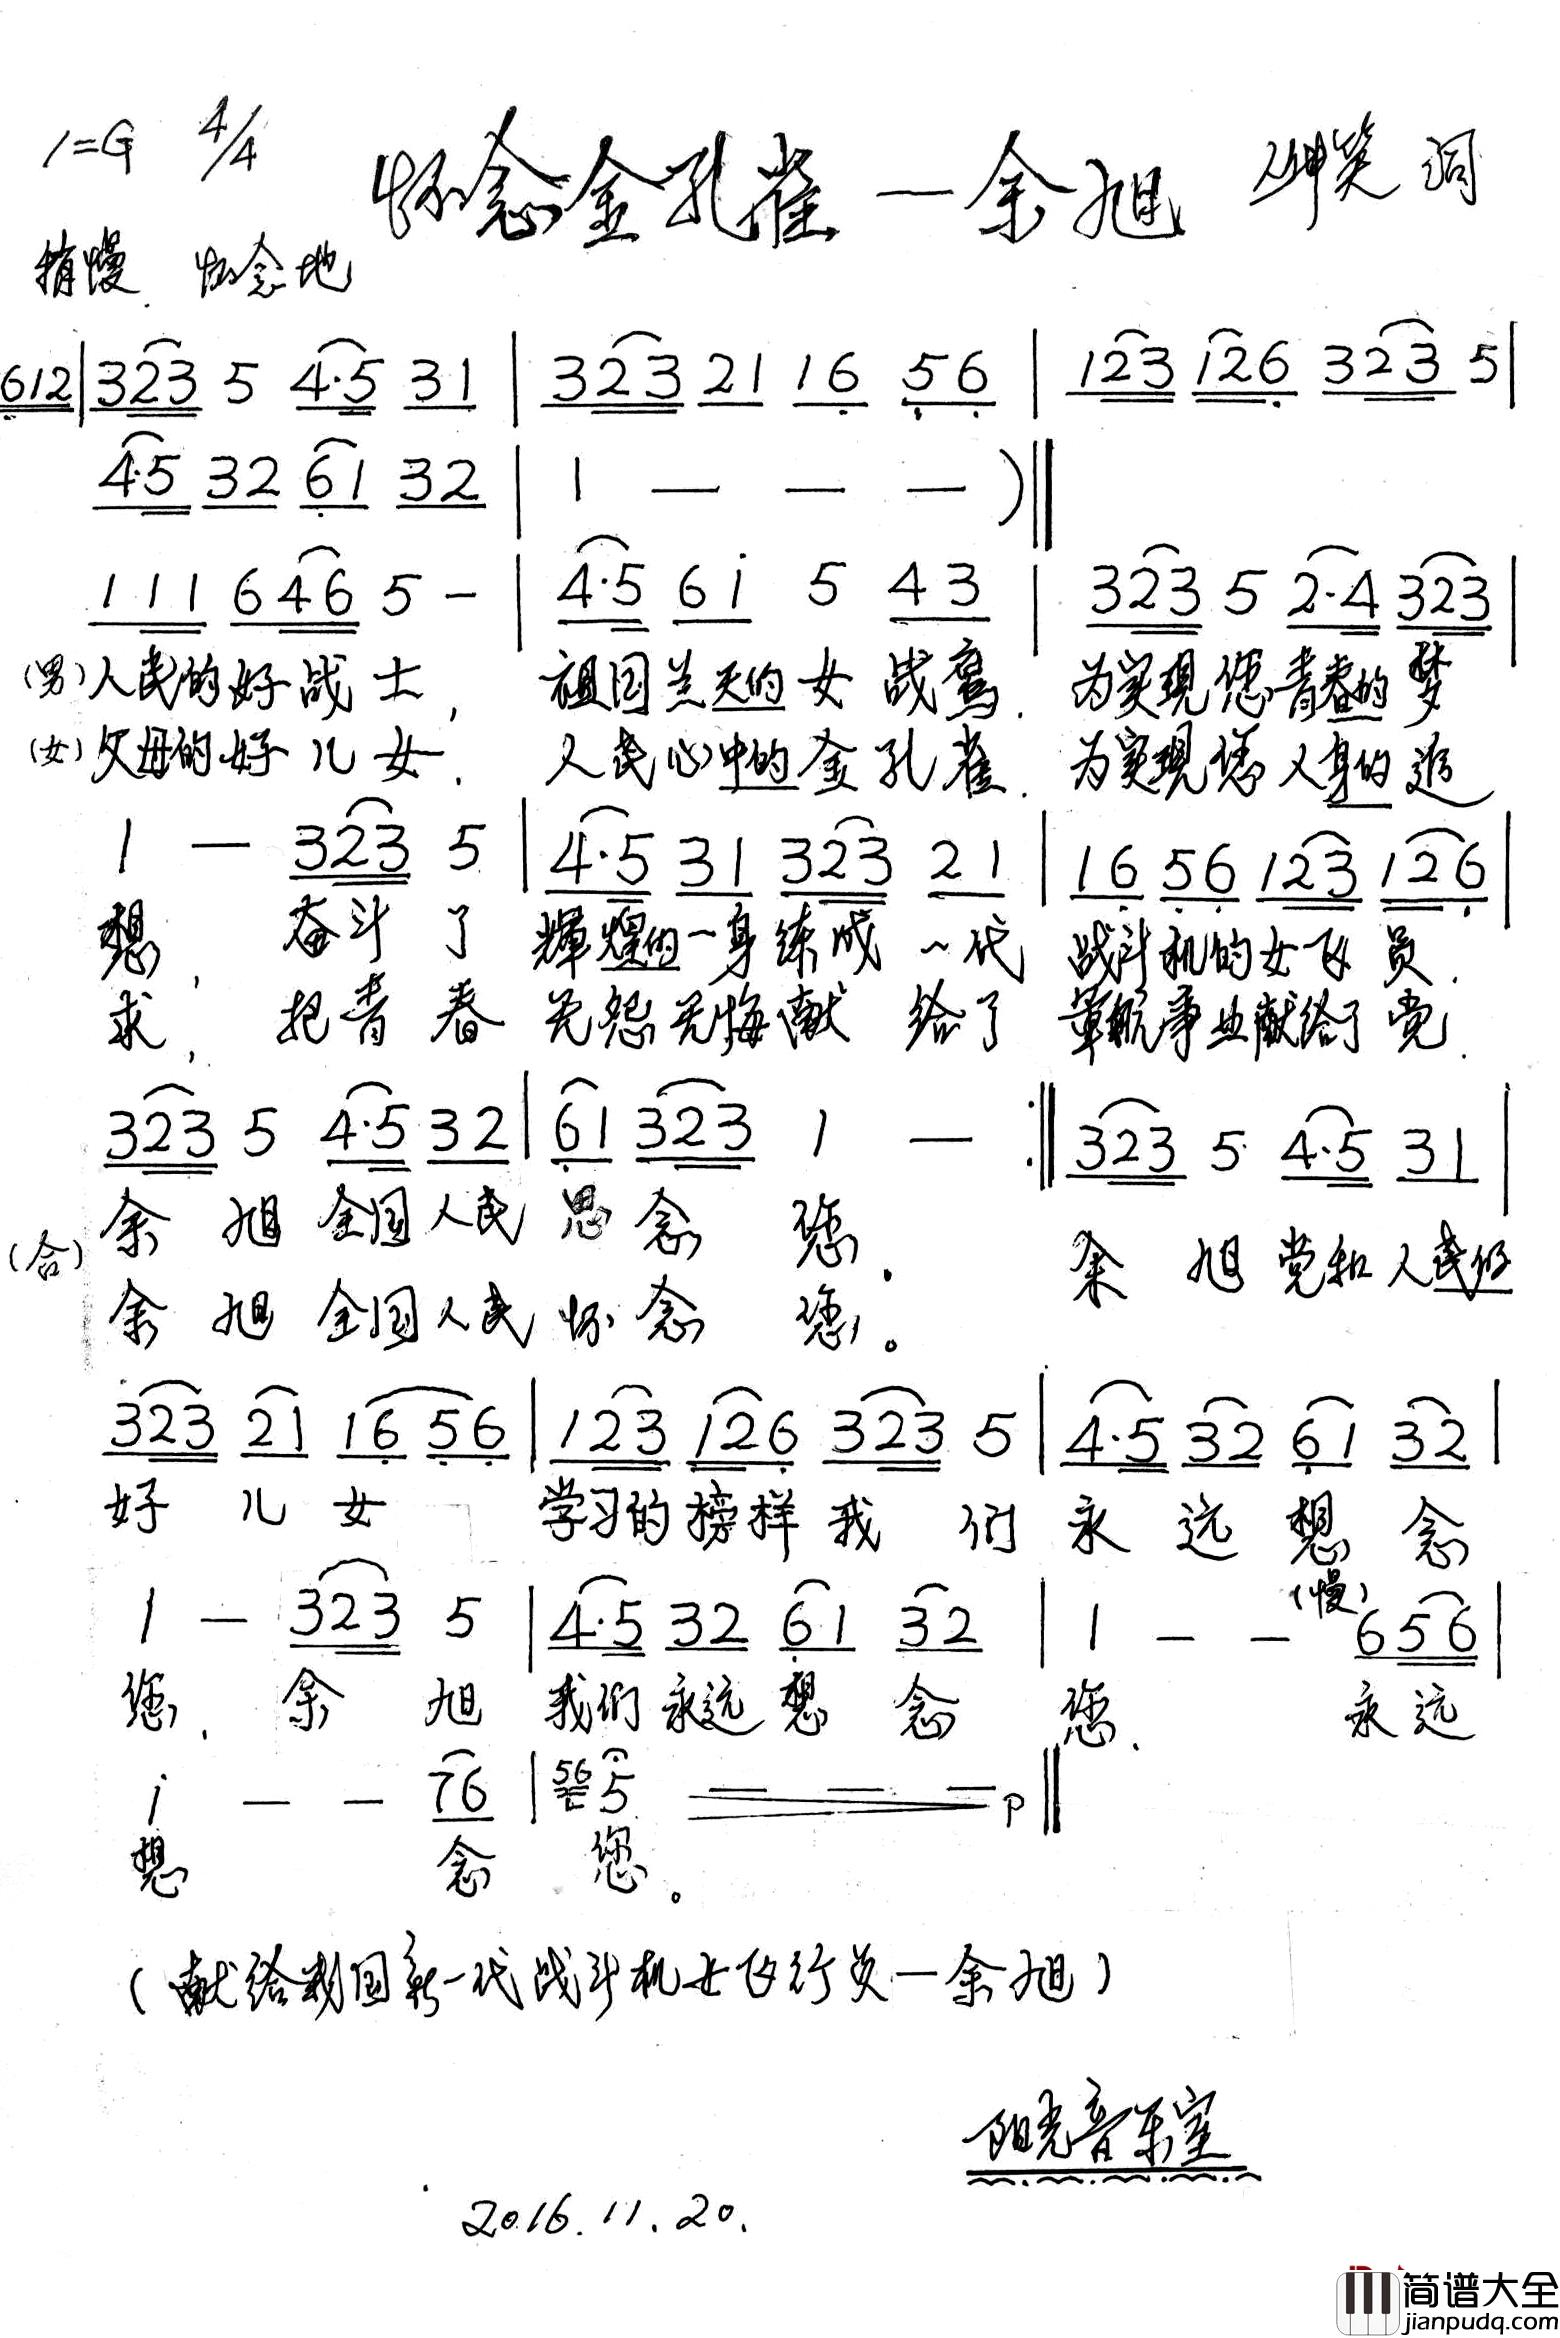 1=G 4/4 怀念金孔雀一余旭 笑 词
稍慢 怀念地
612|323 5 4·5 31|323 21 16 56|123 126 323 5|
4·5 32 61 32|1 — — — )‖
111 646 5 —|4·5 6i 5 43|323 5 2·4 323|
(男)人民的好战士, 祖国蓝天的女战鹰. 为实现您青春的梦
(女)父母的好儿女. 人民心中的金孔雀. 为实现您人身的追
1 — 323 5|4·5 31 323 21|16 56 123 126|
想, 奋斗了 辉煌的一身练成一代 战斗机的女飞员.
求, 把青春 无怨无悔献给了 军航事业献给了党.
323 5 4·5 32|61 323 1 — :‖323 5 4·5 31|
(合) 余旭全国人民思念您. 余旭党和人民的
余旭全国人民怀念您。
323 21 16 56|123 126 323 5|4·5 32 61 32|
好儿女 学习的榜样我们永远想念
(慢)
1 — 323 5|4·5 32 61 32|1 — — 656|
您. 余旭 我们永远想念 您. 永远
i — — 76|56 5 — — — p‖
想 念 您。
(献给我国新一代战斗机女飞行员一余旭)
阳光音乐室
2016.11.20.
简谱大全
jianpudq.com